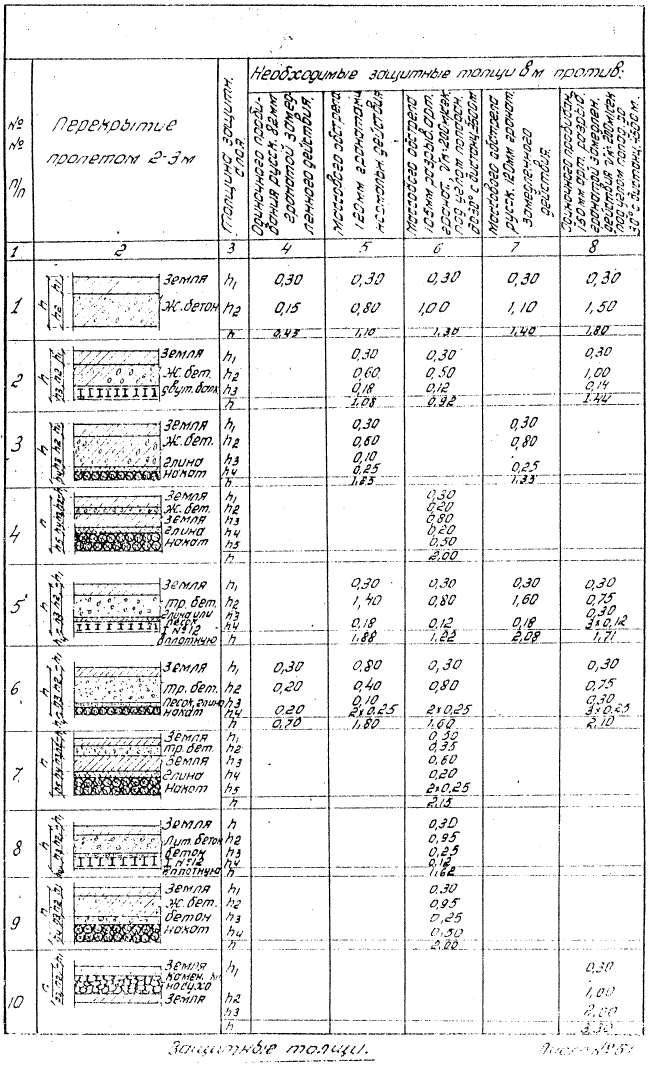 Необходимые защитные толщи в м против:
№
№
п/п
Перекрытие
пролетом 2-3 м
Толщина защитн.
слоя.
Одиночного проби-
вания русск. 82мм
гранатой замед-
ленного действия.
Массового обстрела
120мм гранатами
действия
Массового обстрела
105мм разрыв. арт.
гранат.
под углом попадан.
до 30° с дистанц.
Массового обстрела
русск. 120мм гранат.
замедленного
действия.
Одиночного пробиван.
150мм арт. разрыв.
гранатой замедлен.
действия
под углом попад. до
30° с дистанц.
1 2 3 4 5 6 7 8
1 Земля h1 0,30 0,30 0,30 0,30 0,30
ж.бетон h2 0,15 0,80 1,00 1,10 1,50
h 0,45 1,10 1,30 1,40 1,80
2 Земля h1 0,30 0,30 0,30
ж.бет. h2 0,60 0,50 1,00
двут.балк h3 0,18 0,12 0,14
h 1,08 0,92 1,44
3 Земля h1 0,30 0,30
ж.бет. h2 0,60 0,80
глина h3 0,10
накат h4 0,25 0,25
h 1,25 1,35
4 Земля h1 0,30
ж.бет. h2 0,20
земля h3 0,80
глина h4 0,20
накат h5 0,50
h 2,00
5 Земля h1 0,30 0,30 0,30 0,30
тр.бет. h2 1,40 0,80 1,60 0,75
глина или h3 0,30
песок h4 0,18 0,12 0,18 3×0,12
I №12
вплотную h 1,88 1,22 2,08 1,71
6 Земля h1 0,30 0,80 0,30 0,30
тр.бет. h2 0,20 0,40 0,80 0,75
песок, глина h3 0,10 0,30
накат h4 0,20 2×0,25 2×0,25 3×0,25
h 0,70 1,80 1,60 2,10
7 Земля h1 0,50
тр.бет. h2 0,35
Земля h3 0,60
глина h4 0,20
накат h5 2×0,25
h 2,15
8 Земля h 0,30
Лит.бетон h2 0,95
бетон h3 0,25
I №12 h4 0,12
вплотную h 1,62
9 Земля h1 0,30
ж.бет. h2 0,95
бетон h3 0,25
накат h4 0,50
h 2,00
10 Земля h1 0,30
камен.
насухо 1,00
Земля h2
h3 2,00
h 3,30
Защитные толщи.